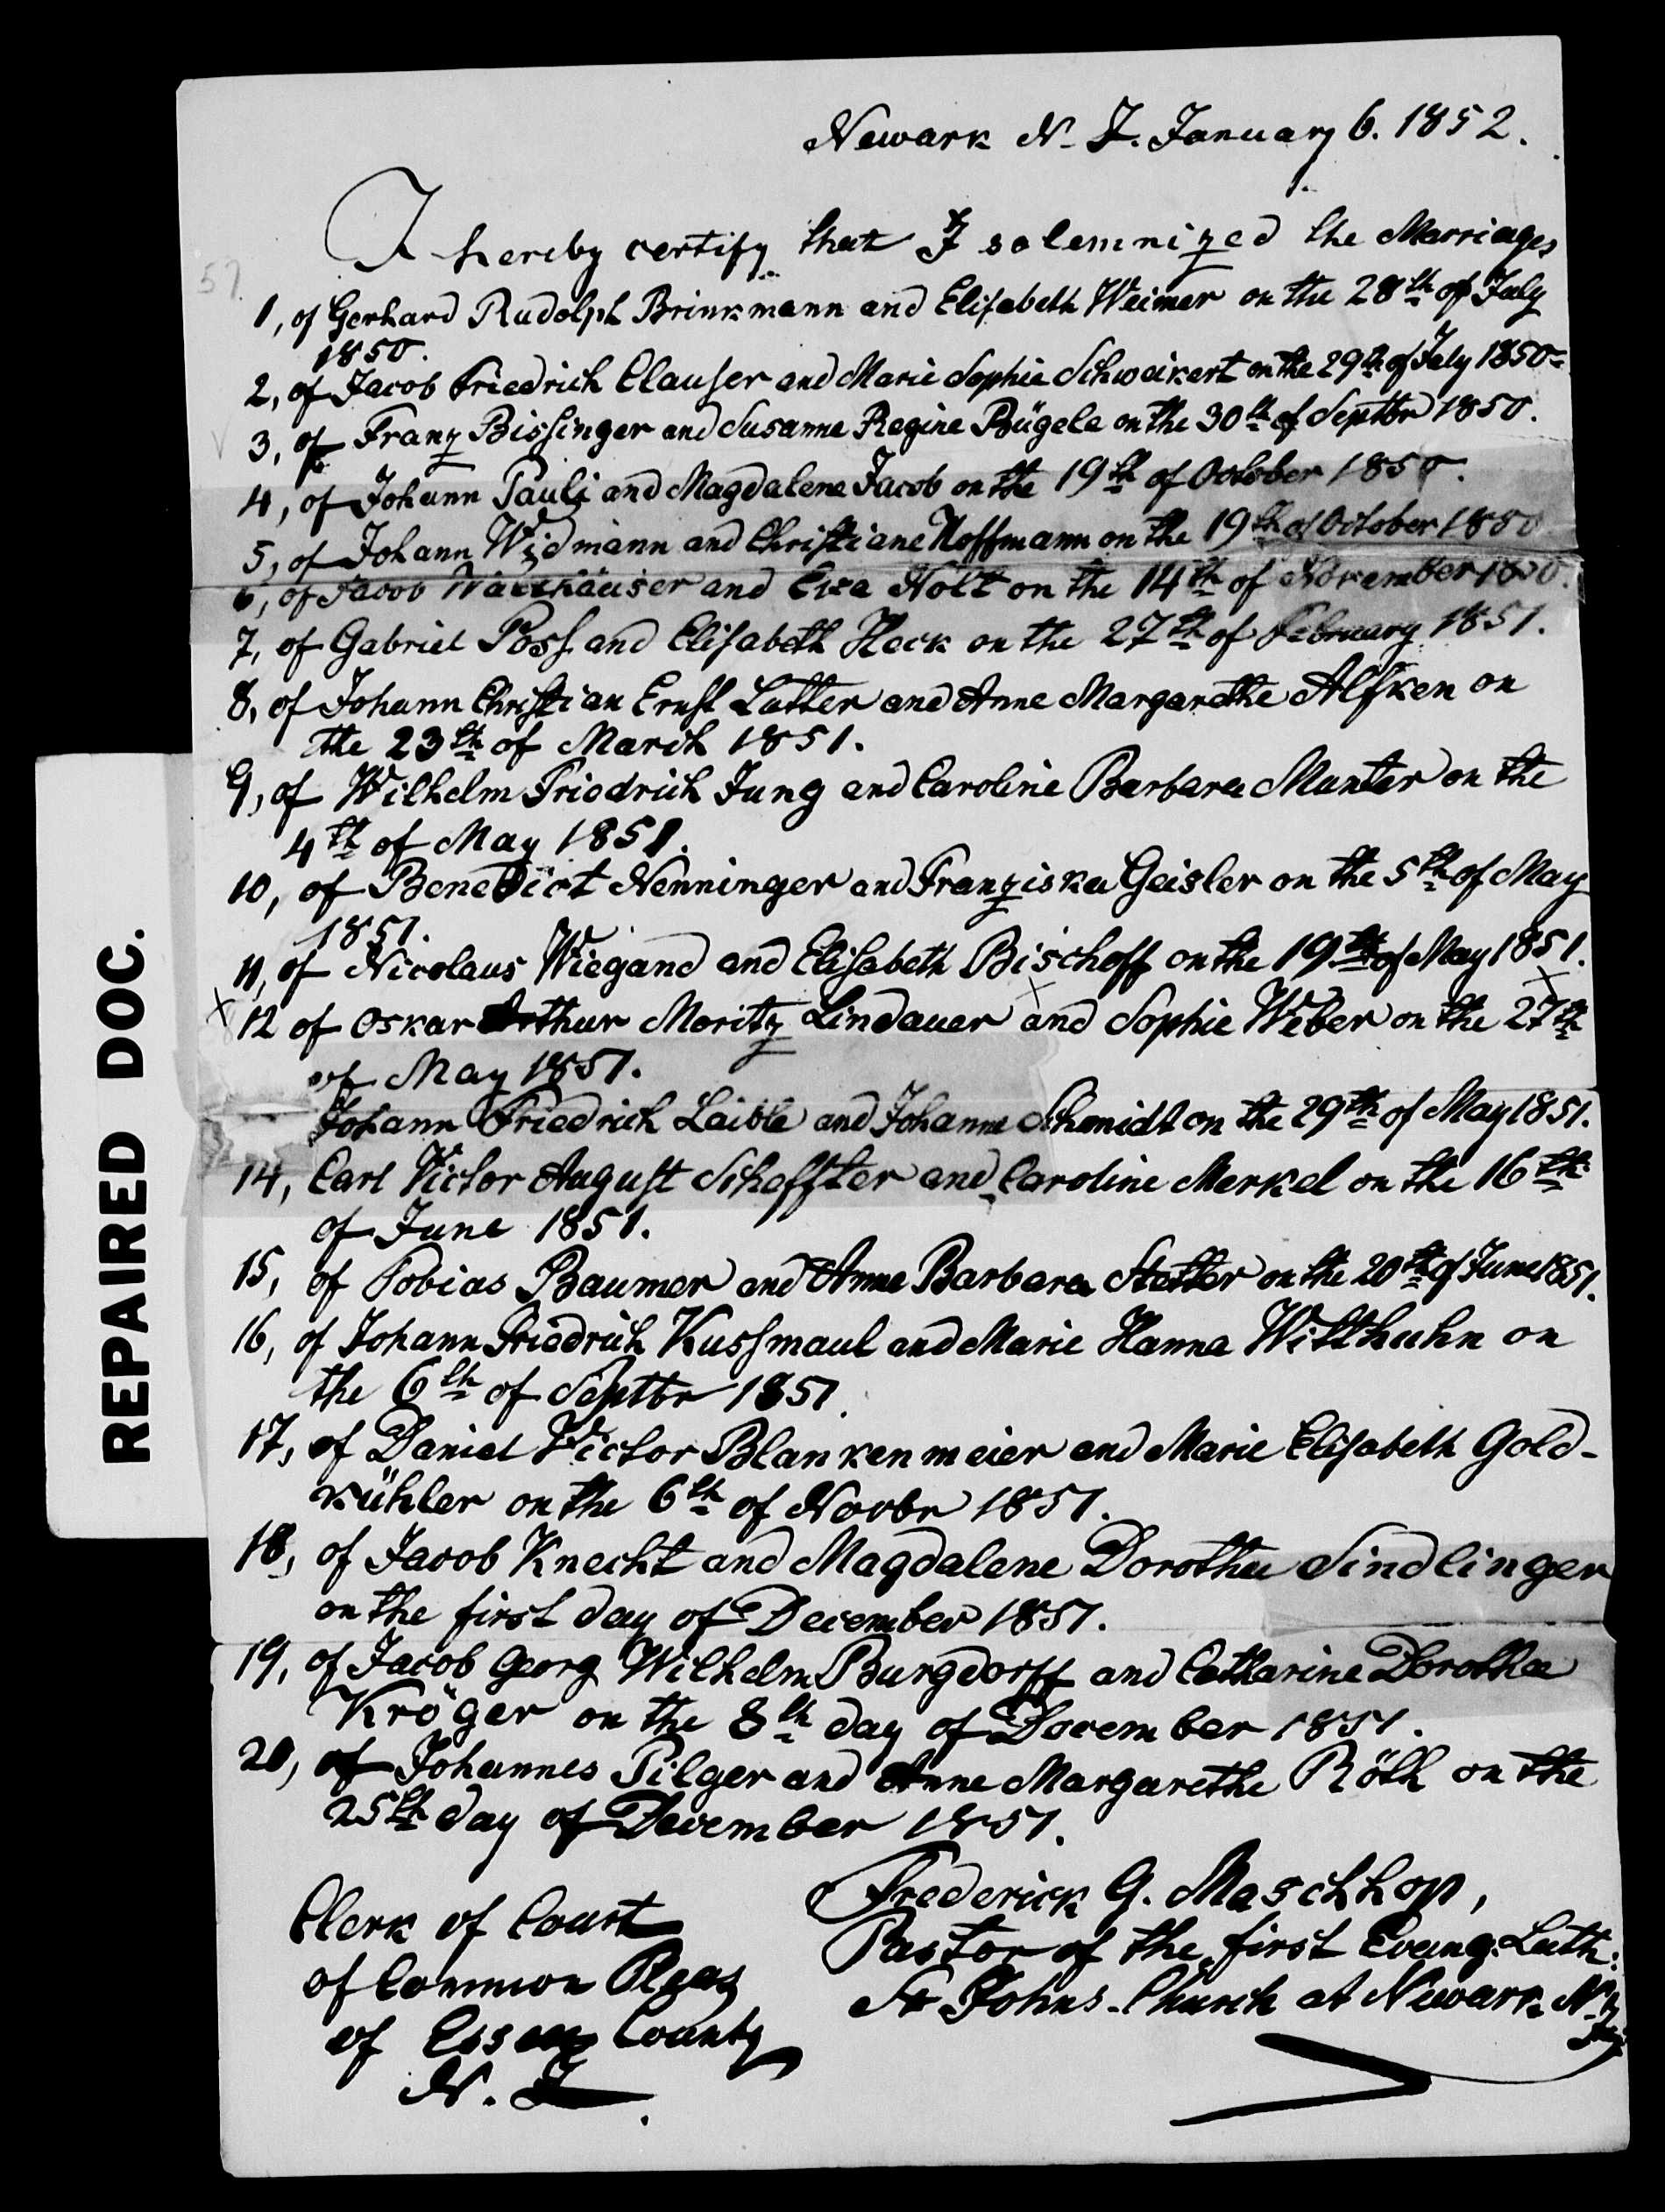 Newark N. J. January 6. 1852.
I hereby certify that I solemnized the Marriages
57.
1, of Gerhard Rudolph Brinkmann and Elisabeth Weimer on the 28th of July
1850.
2, of Jacob Friedrich Clauser and Marie Sophie Schweikert on the 29th of July 1850.
3, of Franz Bissinger and Susanne Regine Bügele on the 30th of Septbr 1850.
4, of Johann Pauli and Magdalene Jacob on the 19th of October 1850.
5, of Johann Widmann and Christiane Hoffmann on the 19th of October 1850
6, of Jacob and Eva on the 14th of November 1850.
7, of Gabriel Poss and Elisabeth Heck on the 27th of February 1851.
8, of Johann Christian Ernst Latter and Anne Margarethe Alfken on
the 23th of March 1851.
9, of Wilhelm Friedrich Jung and Caroline Barbara Munter on the
4th of May 1851.
10, of Benedict Nenninger and Franziska Geisler on the 5th of May
1851.
11, of Nicolaus Wiegand and Elisabeth Bischoff on the 19th of May 1851.
x 12 of Oskar Arthur Moritz Lindauer and Sophie Weber on the 27th
of May 1851.
Johann Friedrich Laible and Johanne Schmidt on the 29th of May 1851.
14, Carl Victor August Scheffter and Caroline Merkel on the 16th
of June 1851.
15, of Tobias Baumer and Anne Barbara Stetter on the 20th of June 1851.
16, of Johann Friedrich Kussmaul and Marie Hanna Witthuhn on
the 6th of Septbr 1851.
17, of Daniel Victor Blankenmeier and Marie Elisabeth Gold-
kühler on the 6th of Novbr 1851.
18, of Jacob Knecht and Magdalene Dorothea Sindlinger
on the first day of December 1851.
19, of Jacob Georg Wilhelm Burgdorff and Catharine Dorothea
Kröger on the 8th day of December 1851.
20, of Johannes Pilger and Anne Margarethe Röth on the
25th day of December 1851.
Frederick G. Maschhop,
Pastor of the first Evang. Luth.
St Johns-Church at Newark N. J.
Clerk of Court
of Common Pleas
of Essex County
N. J.
REPAIRED DOC.